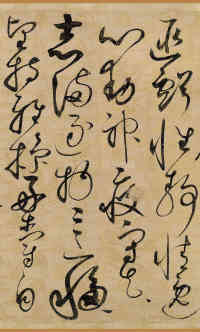 匪虧性靜情逸
心動神疲守真
志滿逐物意移
堅持雅操好爵自